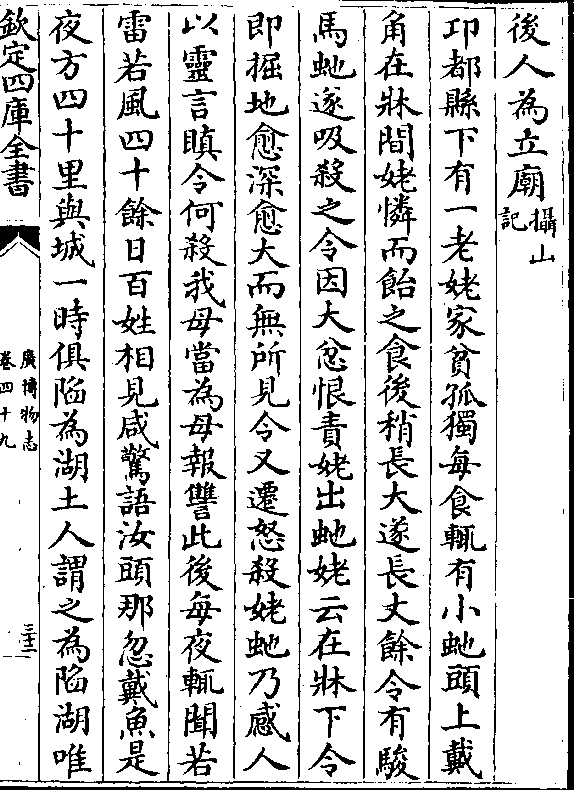 後人為立廟攝山記
邛都縣下有一老姥家貧孤獨每食輒有小虵頭上戴
角在牀間姥憐而飴之食後稍長大遂長丈餘令有駿
馬虵遂吸殺之令因大忿恨責姥出虵姥云在牀下令
即掘地愈深愈大而無所見令又遷怒殺姥虵乃感人
以靈言瞋令何殺我母當為母報讐此後每夜輒聞若
雷若風四十餘日百姓相見咸驚語汝頭那忽戴魚是
夜方四十里與城一時俱陷為湖土人謂之為陷湖唯
欽定四庫全書
廣博物志
卷四十九
三十二